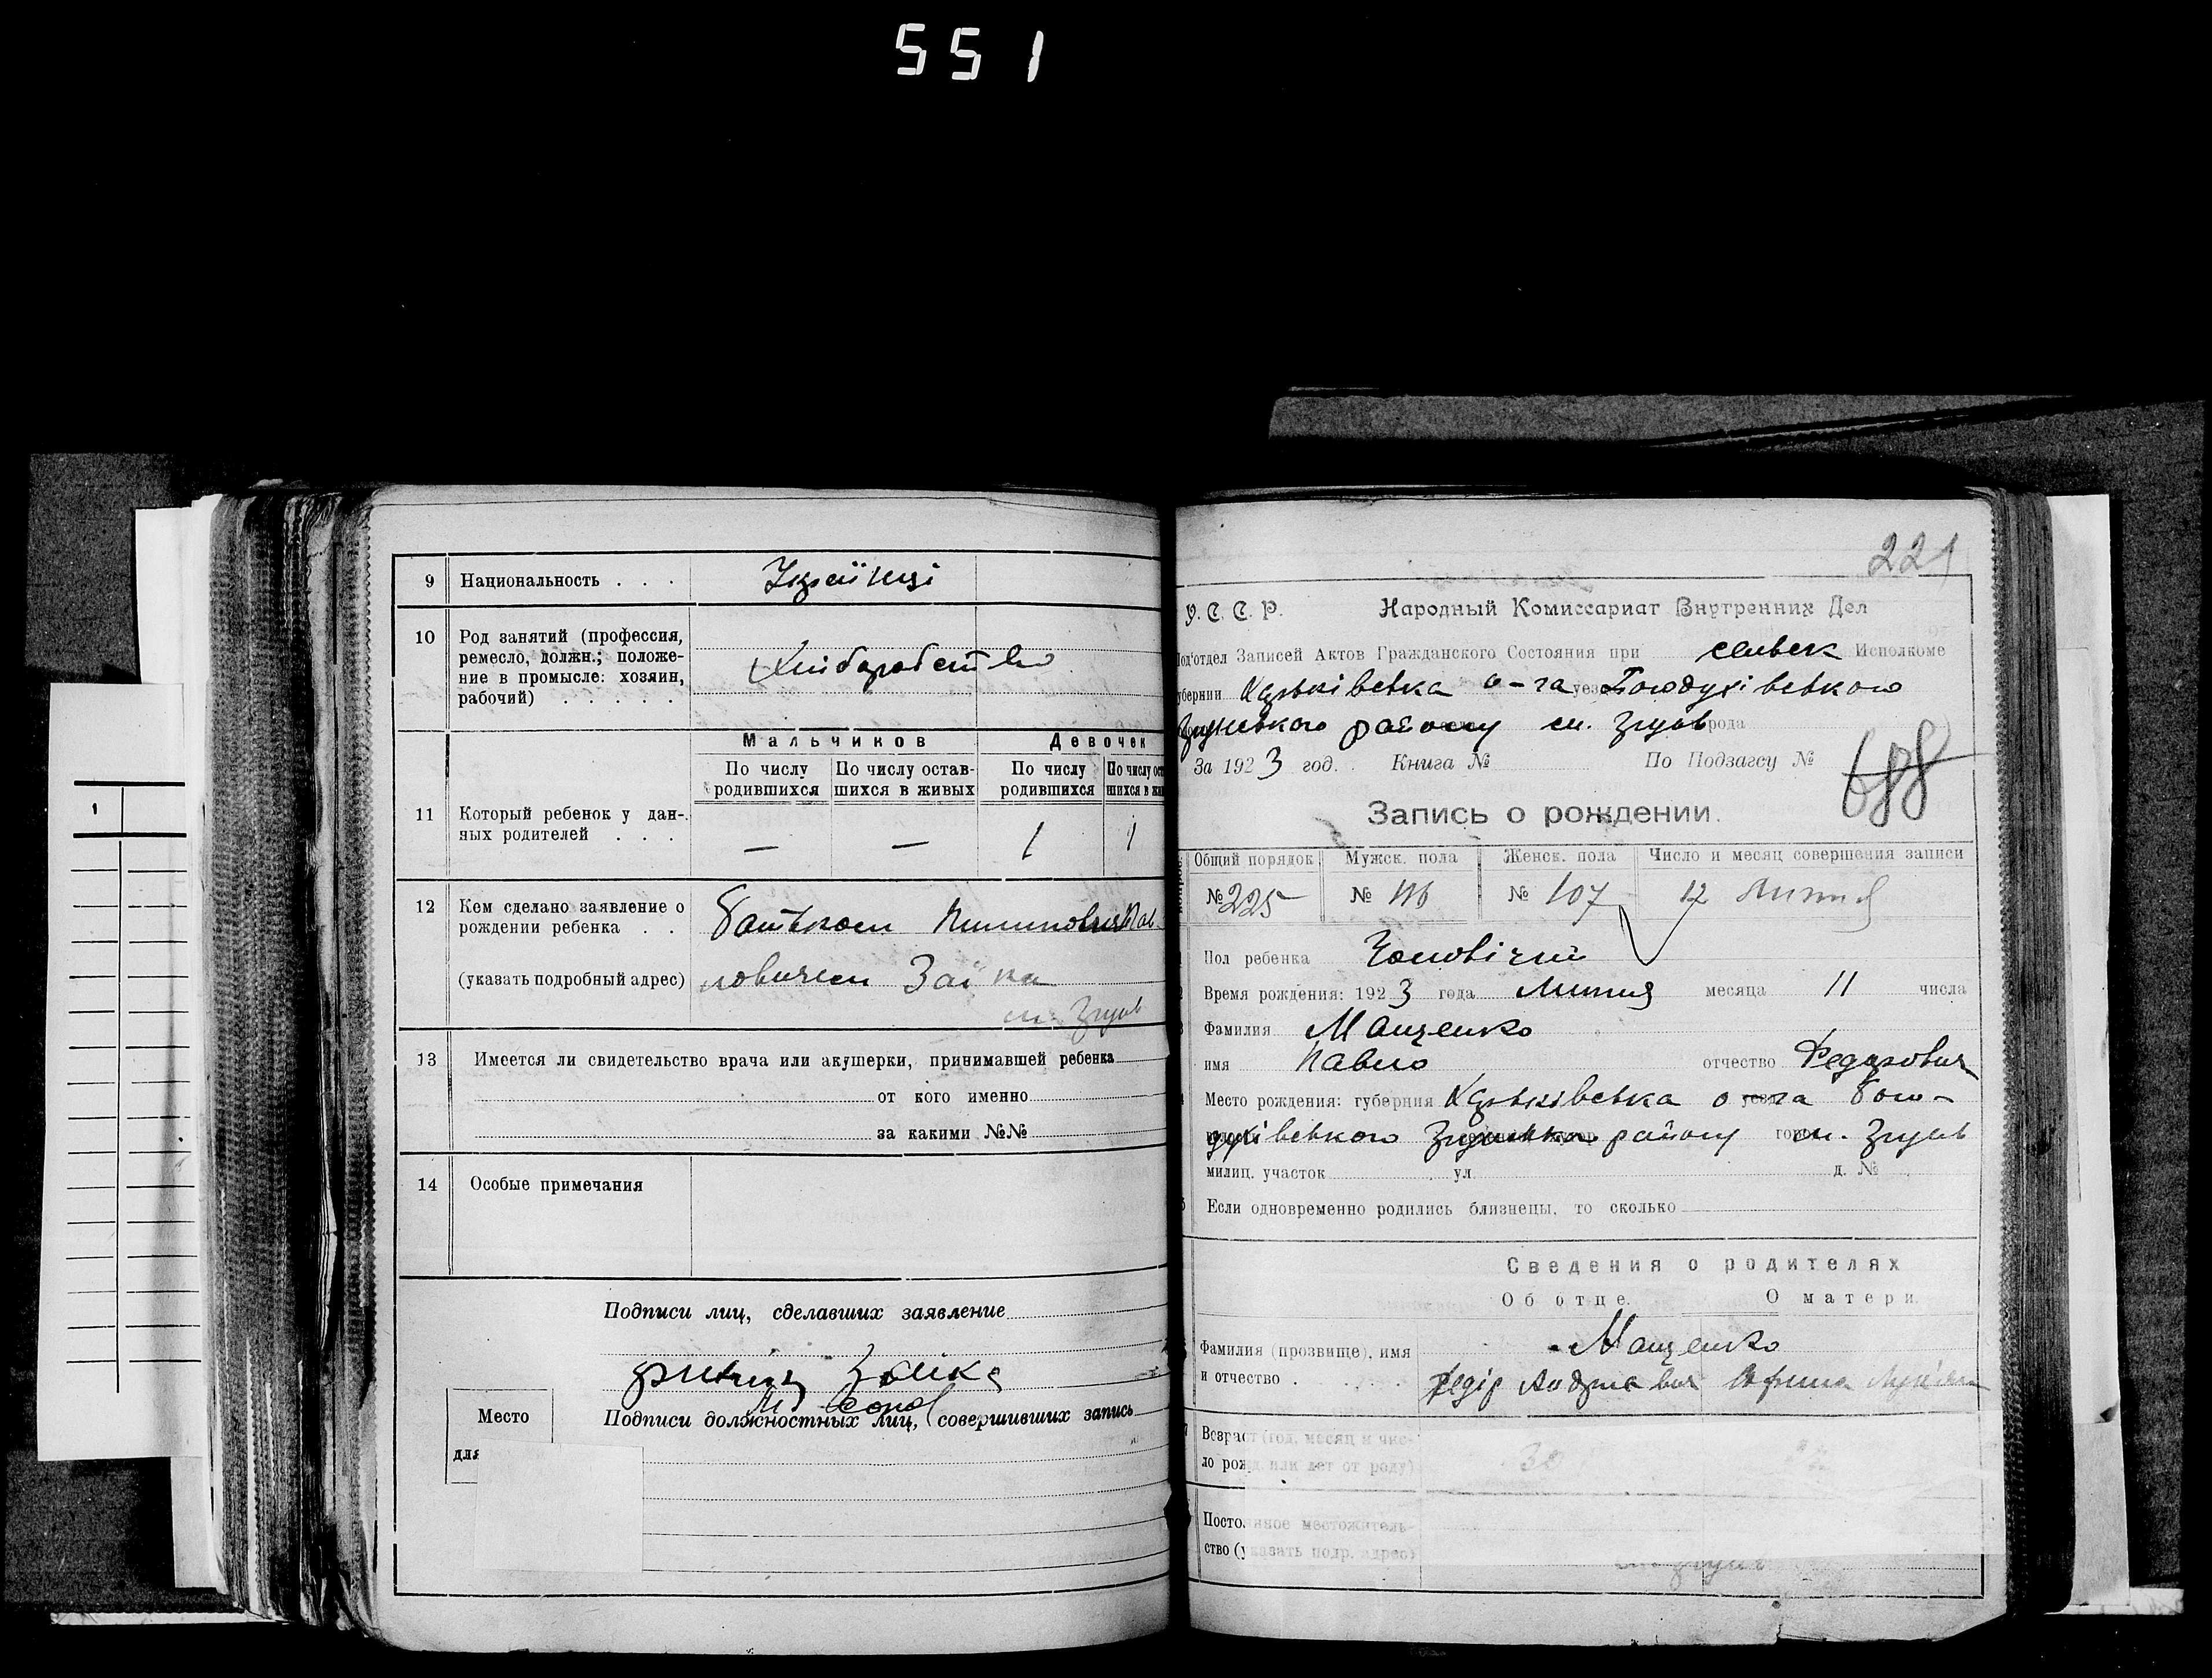 551
9 Национальность . . . Українці
10 Род занятий (профессия,
ремесло, должн.; положе-
ние в промысле: хозяин,
рабочий) . . . . . Хліборобство
11 Который ребенок у дан-
ных родителей . . .
Мальчиков Девочек
По числу родившихся По числу остав-шихся в живых По числу родившихся По числу ост
— — 1 1
12 Кем сделано заявление о
рождении ребенка . . батьком Пилиповичем Пав
(указать подробный адрес) ловичем Заїка
13 Имеется ли свидетельство врача или акушерки, принимавшей ребенка
от кого именно
за какими №№
14 Особые примечания
Подписи лиц, сделавших заявление
Заика
Подписи должностных лиц, совершивших запись
Место
для
1
221
У. С. С. Р. Народный Комиссариат Внутренних Дел
Под'отдел Записей Актов Гражданского Состояния при сільвек Исполкоме
губернии Харьківська о-га Богодухівського
району
За 1923 год. Книга № По Подзагсу № 688
Запись о рождении.
Общий порядок Мужск. пола Женск. пола Число и месяц совершения записи
№ 225 № 116 № 107 12 Липня
Пол ребенка Чоловічий
Время рождения: 1923 года Липня месяца 11 числа
Фамилия Мащенко
имя Павло отчество Федорович
Место рождения: губерния Харьківська о-га Бого-
духівського району
милиц. участок ул. д. №
Если одновременно родились близнецы, то сколько
Сведения о родителях
Об отце. О матери.
Фамилия (прозвище), имя Мащенко
и отчество . . . . Федір
Возраст (год, месяц и чис-
ло рожд. или лет от роду) 30
Постоянное местожитель-
ство (указать подр. адрес)